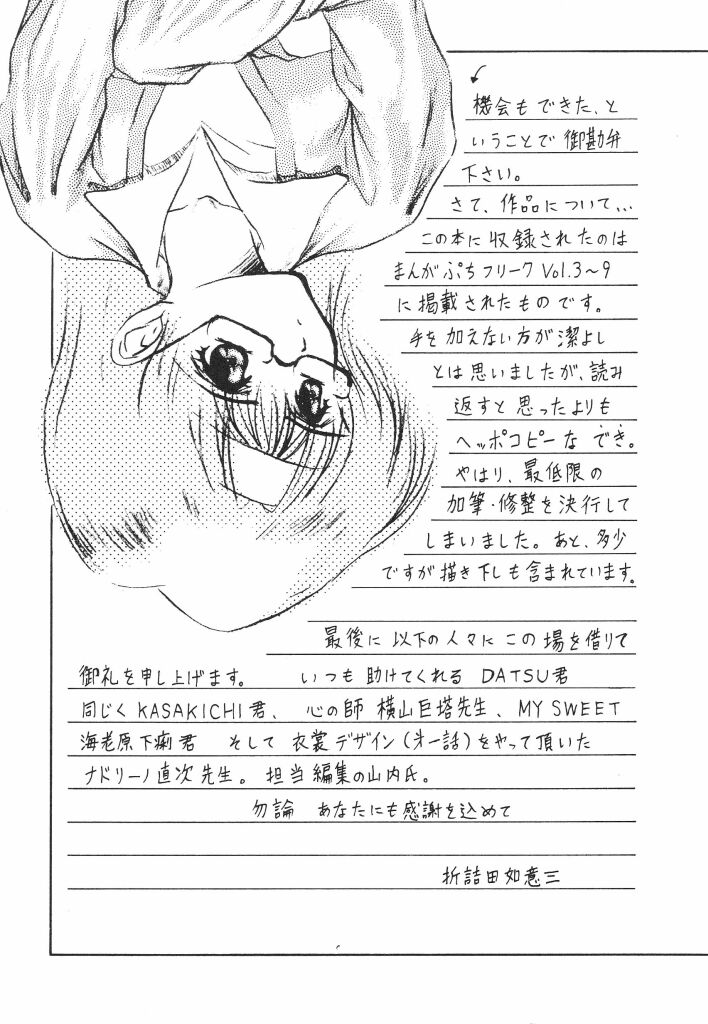 機会もできた、と
いうことで 御勘弁
下さい。
さて、作品について...
この本に収録されたのは
まんがぷちフリーク Vol.3〜9
に掲載されたものです。
手を加えない方が潔よし
とは思いましたが、読み
返すと思ったよりも
ヘッポコピーなでき。
やはり、最低限の
加筆・修整を決行して
しまいました。あと、多少
ですが描き下しも含まれています。
最後に以下の人々にこの場を借りて
御礼を申し上げます。 いつも助けてくれる DATSU君
同じくKASAKICHI君、心の師 横山巨塔先生、MY SWEET
海老原下痢君 そして 衣裳デザイン(才一話)をやって頂いた
ナドリーノ直次先生。担当編集の山内氏。
勿論 あなたにも感謝を込めて
折詰田如意三